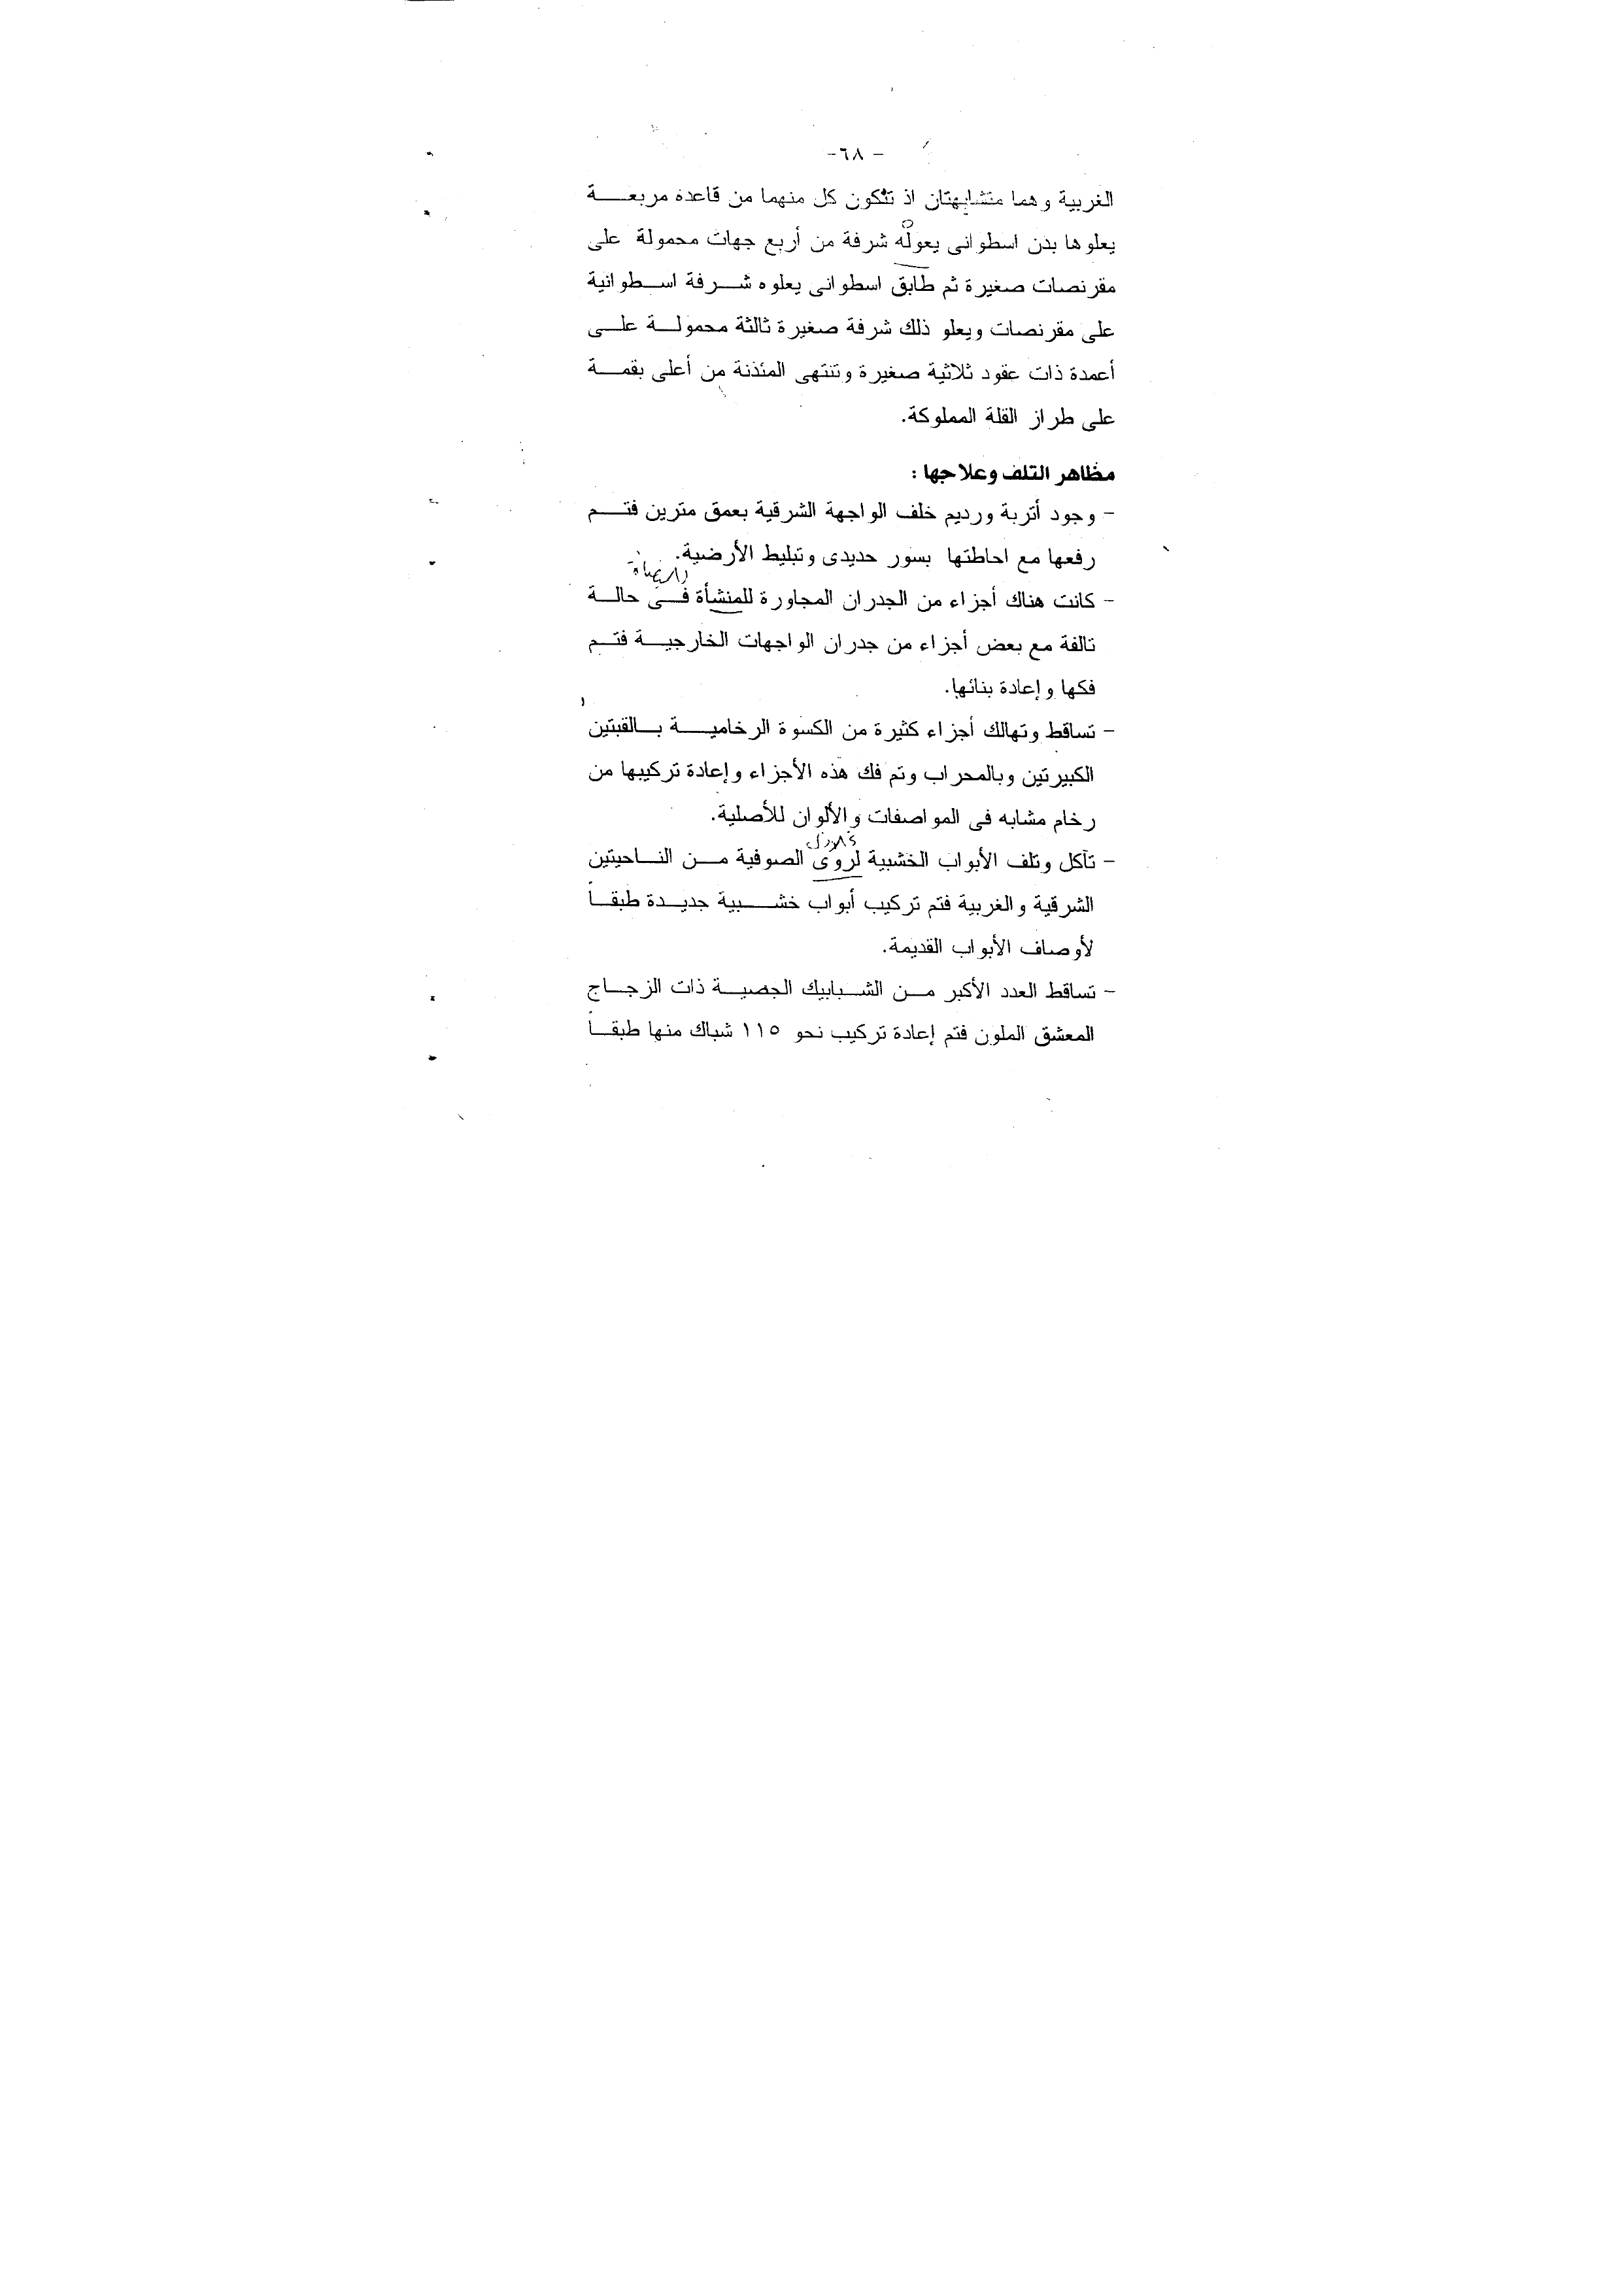 - ٦٨-
الغربية وهما متشابهتان اذ تتكون كل منهما من قاعدة مربعة
يعلوها بدن اسطوانى يعوله شرفة من أربع جهات محمولة على
مقرنصات صغيرة ثم طابق اسطوانى يعلوه شرفة اسطوانية
على مقرنصات ويعلو ذلك شرفة صغيرة ثالثة محمولة على
أعمدة ذات عقود ثلاثية صغيرة وتنتهى المئذنة من أعلى بقمة
على طراز القلة المملوكة.
مظاهر التلف وعلاجها :
- وجود أتربة ورديم خلف الواجهة الشرقية بعمق مترين فتم
رفعها مع احاطتها بسور حديدى وتبليط الأرضية.
- كانت هناك أجزاء من الجدران المجاورة للمنشأة فى حالة
تالفة مع بعض أجزاء من جدران الواجهات الخارجية فتم
فكها وإعادة بنائها.
- تساقط وتهالك أجزاء كثيرة من الكسوة الرخامية بالقبتين
الكبيرتين وبالمحراب وتم فك هذه الأجزاء وإعادة تركيبها من
رخام مشابه فى المواصفات والألوان للأصلية.
- تآكل وتلف الأبواب الخشبية لروى الصوفية من الناحيتين
الشرقية والغربية فتم تركيب أبواب خشبية جديدة طبقاً
لأوصاف الأبواب القديمة.
- تساقط العدد الأكبر من الشبابيك الجصية ذات الزجاج
المعشق الملون فتم إعادة تركيب نحو ١١٥ شباك منها طبقاً